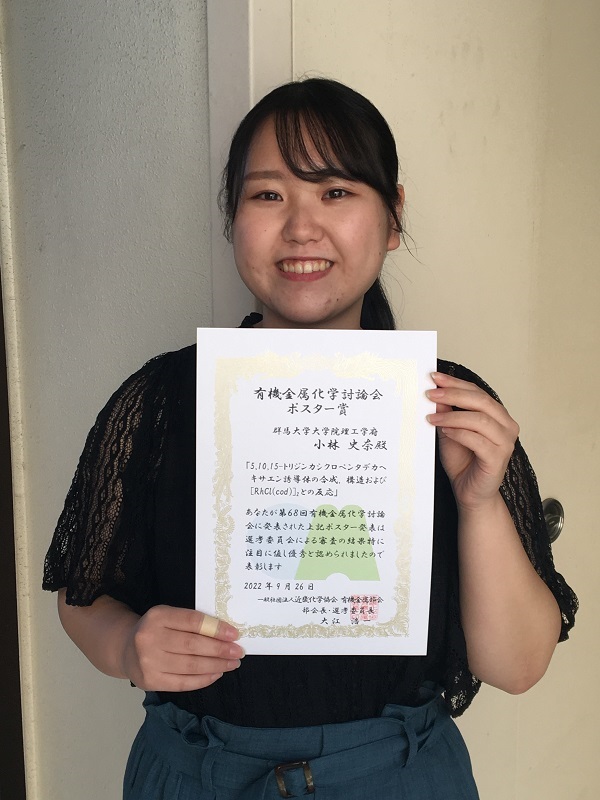 有機金属化学討論会
ポスター賞
群馬大学大学院理工学府
小林 史奈殿
「5,10,15-トリジンカシクロペンタデカヘ
キサエン誘導体の合成，構造および
[RhCl(cod)]₂との反応」
あなたが第68回有機金属化学討論
会に発表された上記ポスター発表は
選考委員会による審査の結果特に
注目に値し優秀と認められましたので
表彰します
2022年9月26日
一般社団法人近畿化学協会 有機金属部会
部会長・選考委員長
大江 浩一